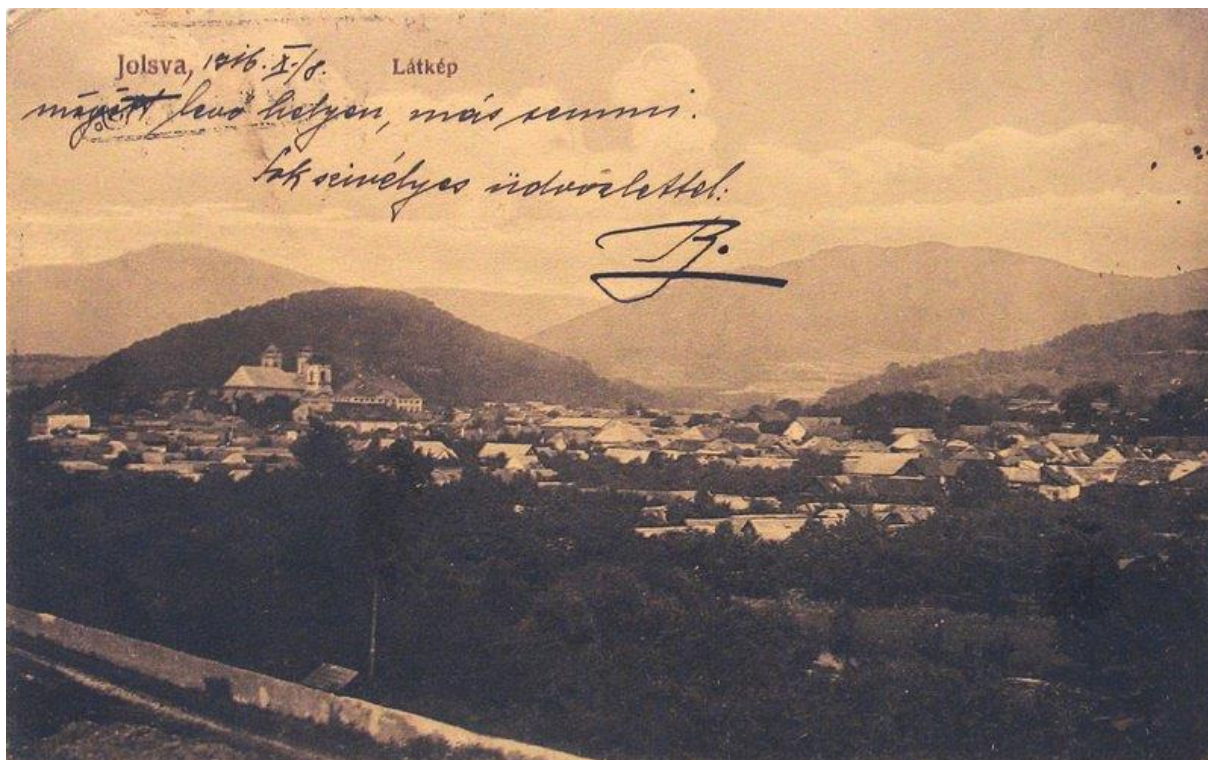 Jolsva, 1916. X./8. Látkép
levő helyen, más semmi.
Sok szivélyes üdvözlettel:
B.